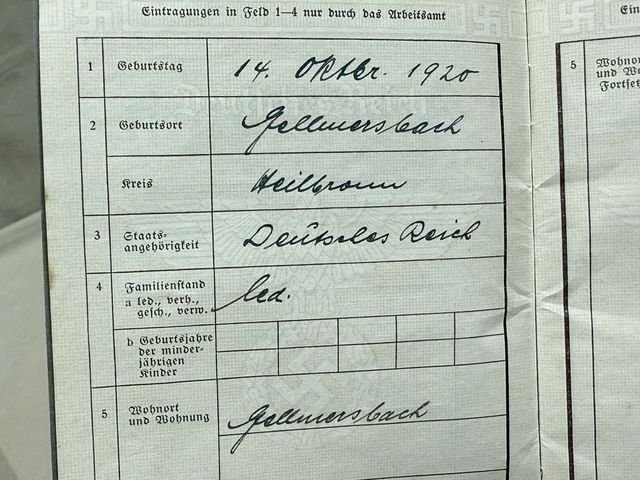 Eintragungen in Feld 1—4 nur durch das Arbeitsamt
1 Geburtstag 14. Oktbr. 1920
2 Geburtsort Gellmersbach
Kreis Heilbronn
3 Staats-
angehörigkeit Deutsches Reich
4 Familienstand
a led., verh.,
gesch., verw. led.
b Geburtsjahre
der minder-
jährigen
Kinder
5 Wohnort
und Wohnung Gellmersbach
Ein
5 Wohnor
und Wo
Fortset